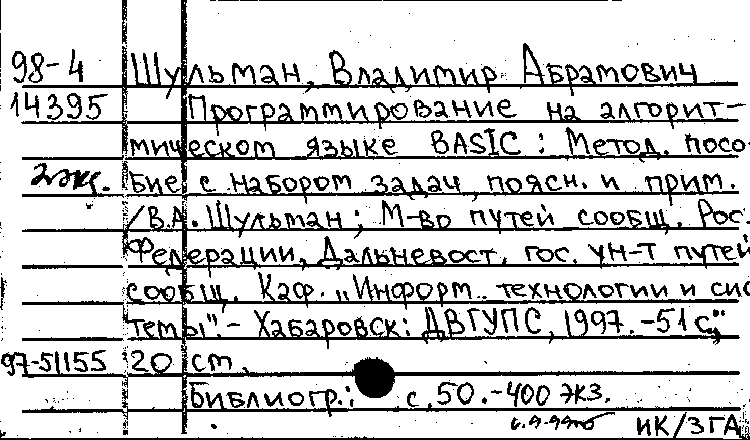 98-4 Шульман, Владимир Абрамович
14395 Программирование на алгорит-
мическом языке BASIC : Метод. посо-
2 экз. бие с набором задач, поясн. и прим.
/В.А. Шульман; М-во путей сообщ. Рос.
Федерации, Дальневост. гос. ун-т путей
сообщ. Каф. „Информ. технологии и сис
темы". - Хабаровск: ДВГУПС, 1997. -51 с.;
97-51155 20 см.
Библиогр.: с. 50. -400 экз.
ИК/ЗГА